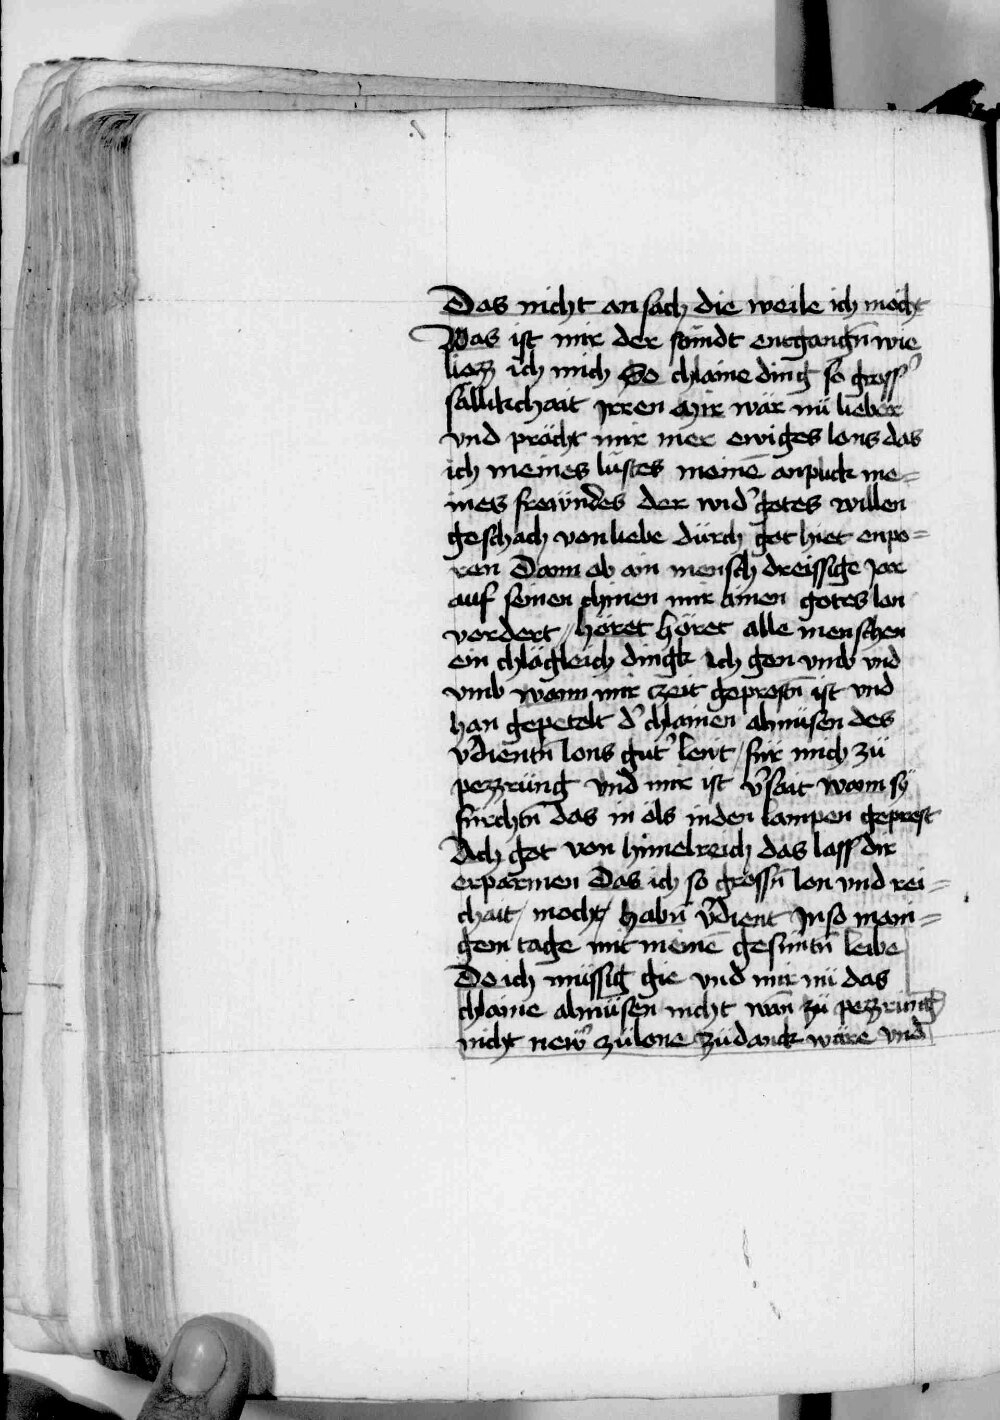 Das nicht an sach die weile ich mocht
Was ist mir der stündt entgangn̄ wie
liezz ich mich So chlaine ding so gross᾽
sälikchait Irren Mir wär nü lieber
vnd prächt mir mer ewiges lons das
ich meines lüstes meinē anplick mei=
nes frewndes der wid᾽ gotes willen
geschach von liebe dürch got hiet enpo=
ren Dann ob ain mensch dreissige Jar
auf seinen chinen mir ainen gotes lon
vordert / Höret höret alle menschen
ein chlägleich dingk Ich gen vmb vnd
vmb wann mir czeit geprostn̄ ist vnd
han gepetelt d᾽ chlainen almüsen des
v᾽dientn̄ lons gut᾽ lewt / für mich zü
pezzrüng vnd mir ist v᾽sait wann sÿ
fürchtn̄ das in öls in den lampen geprest
Ach got von himelreich das lass dir
erparmen Das ich so grossn̄ lon vnd rei=
chait / mocht / habn̄ v᾽dient In so mani=
gem tage mit meinē gesüntn̄ leibe
Do ich müssig gie vnd mir nü das
chlaine almüsen nicht wan̄ zü pezzrung
nicht new᾽ zü lone zü danck wäre vnd